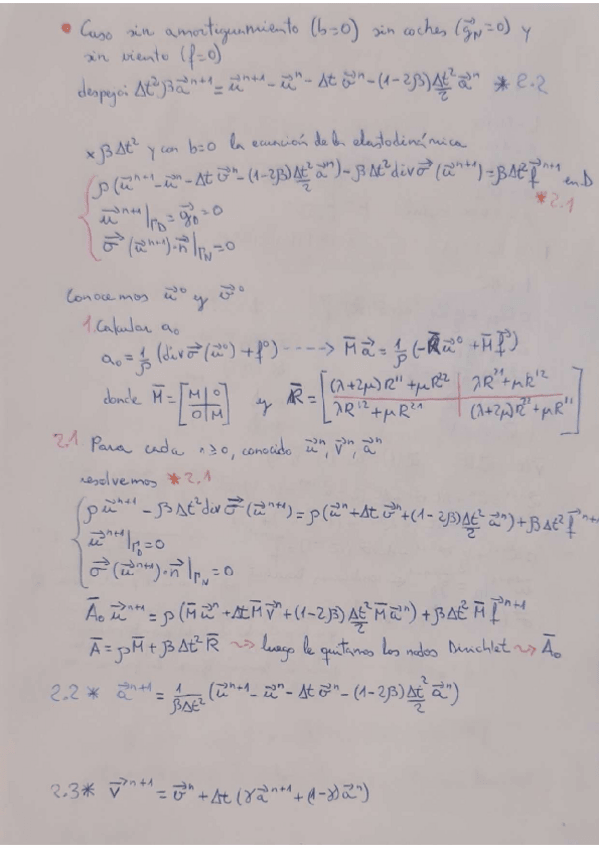 • Caso sin amortiguamiento (b=0) sin coches (g⃗_N=0) y
sin viento (f=0)
despejar Δt²βa⃗ⁿ⁺¹ = u⃗ⁿ⁺¹ - u⃗ⁿ - Δt v⃗ⁿ - (1-2β)Δt²/2 a⃗ⁿ * 2.2
× βΔt² y con b=0 la ecuación de la elastodinámica
ρ(u⃗ⁿ⁺¹ - u⃗ⁿ - Δt v⃗ⁿ - (1-2β)Δt²/2 a⃗ⁿ) - βΔt² div σ⃗(u⃗ⁿ⁺¹) = βΔt² f⃗ⁿ⁺¹ en D
*2.1
u⃗ⁿ⁺¹|Γ_D = g⃗_D = 0
σ⃗(u⃗ⁿ⁺¹)·n⃗|Γ_N = 0
Conocemos u⃗⁰ y v⃗⁰
1. Calcular a₀
a₀ = 1/ρ (div σ⃗(u⃗⁰) + f⁰) ----→ M̄ a⃗ = 1/ρ (-R̄ u⃗⁰ + M̄ f⃗⁰)
donde M̄ = [M 0; 0 M] y R̄ = [(λ+2μ)R¹¹ + μR²² | λR²¹ + μR¹²; λR¹² + μR²¹ | (λ+2μ)R²¹ + μR¹¹]
2.1 Para cada n≥0, conocido u⃗ⁿ, v⃗ⁿ, a⃗ⁿ
resolvemos *2.1
ρu⃗ⁿ⁺¹ - βΔt² div σ⃗(u⃗ⁿ⁺¹) = ρ(u⃗ⁿ + Δt v⃗ⁿ + (1-2β)Δt²/2 a⃗ⁿ) + βΔt² f⃗ⁿ⁺¹
u⃗ⁿ⁺¹|Γ_D = 0
σ⃗(u⃗ⁿ⁺¹)·n⃗|Γ_N = 0
Ā₀ u⃗ⁿ⁺¹ = ρ(M̄ u⃗ⁿ + Δt M̄ v⃗ⁿ + (1-2β)Δt²/2 M̄ a⃗ⁿ) + βΔt² M̄ f⃗ⁿ⁺¹
Ā = ρM̄ + βΔt² R̄ ⇝ luego le quitamos los nodos Dirichlet ⇝ Ā₀
2.2* a⃗ⁿ⁺¹ = 1/(βΔt²) (u⃗ⁿ⁺¹ - u⃗ⁿ - Δt v⃗ⁿ - (1-2β)Δt²/2 a⃗ⁿ)
2.3* v⃗ⁿ⁺¹ = v⃗ⁿ + Δt (γa⃗ⁿ⁺¹ + (1-γ)a⃗ⁿ)